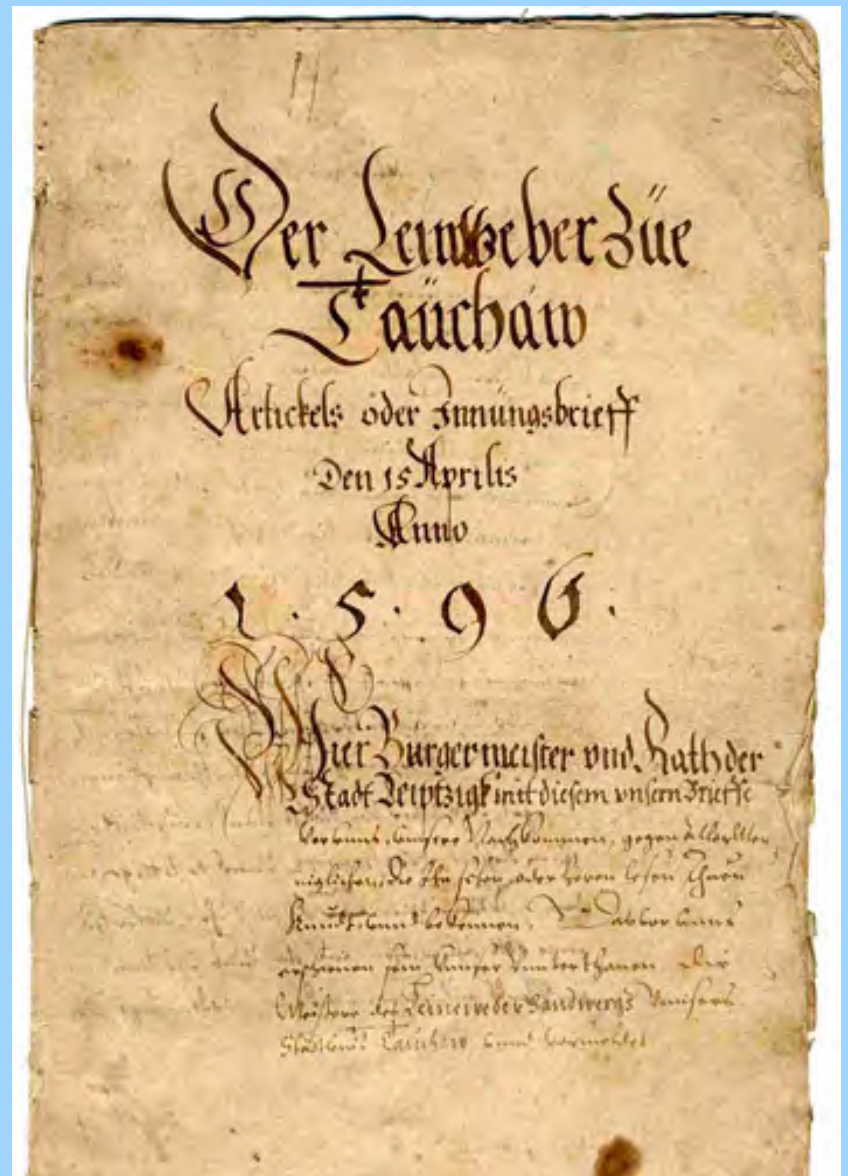 Der Leinweber züe
Taüchaw
Artickels oder Innüngsbrieff
Den 15 Aprilis
Anno
1 · 5 · 9 6 ·
Wier Bürgermeister vnd Rath der
Stadt Leiptzigk mit diesem vnsern Brieffe
Vor vnns, vnnsere Nachkommen, gegen
die ihn sehen oder hören lesen Thuen
Kundt vnnd bekennen, Das vor vnns
erschienen sein Vnnser Vnnterthanen Die
Meistere des Leineweber Handwergs Vnnsers
Städtleins Tauchaw vnnd vormeldet